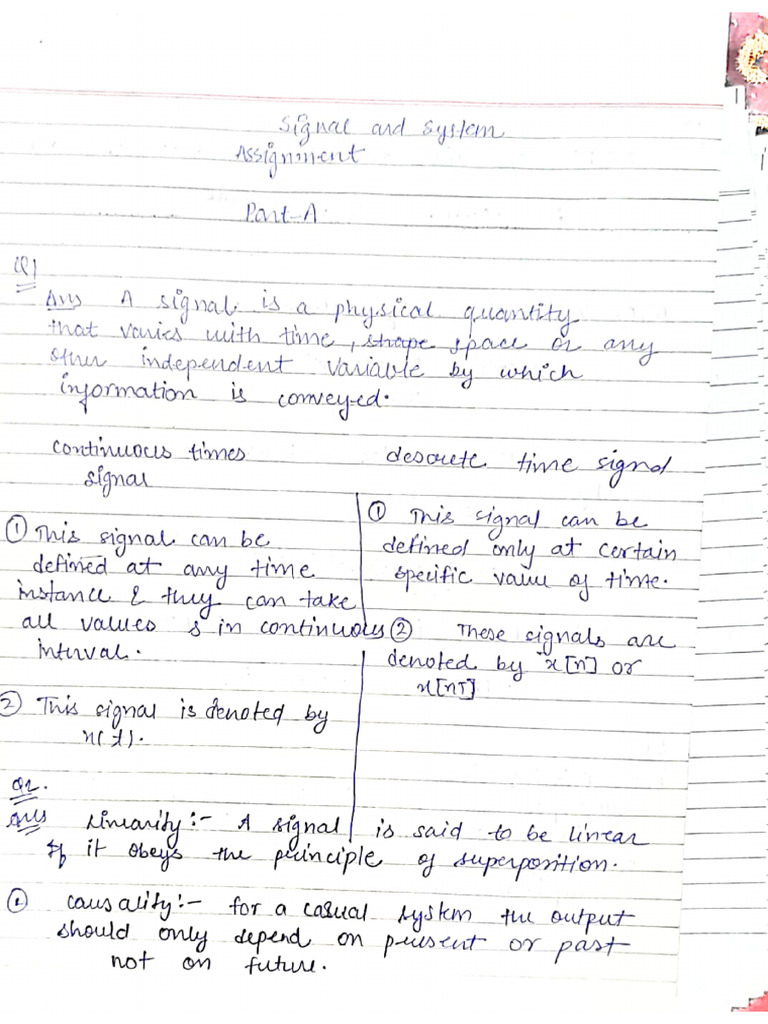 Signal and System
Assignment
Part-A
Q1
Ans A signal is a physical quantity
that varies with time, shape space or any
other independent variable by which
information is conveyed.
continuous times
signal
① This signal can be
defined at any time
instance & they can take
all values s in continuous
interval.
② This signal is denoted by
x(t).
descrete time signal
① This signal can be
defined only at certain
specific value of time.
② These signals are
denoted by x[n] or
x[nT]
Q2.
Ans Linearity:- A signal is said to be linear
If it obeys the principle of superposition.
② Causality:- for a casual system the output
should only depend on present or past
not on future.